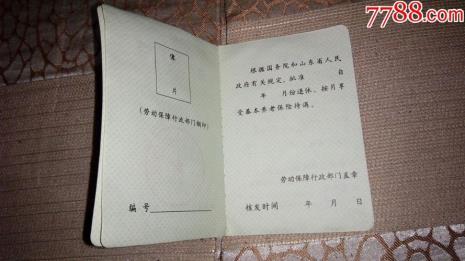 7788.com
像
片
(劳动保障行政部门钢印)
编号
根据国务院和山东省人民
政府有关规定，批准 自
年 月份退休。按月享
受基本养老保险待遇。
劳动保障行政部门盖章
核发时间 年 月 日